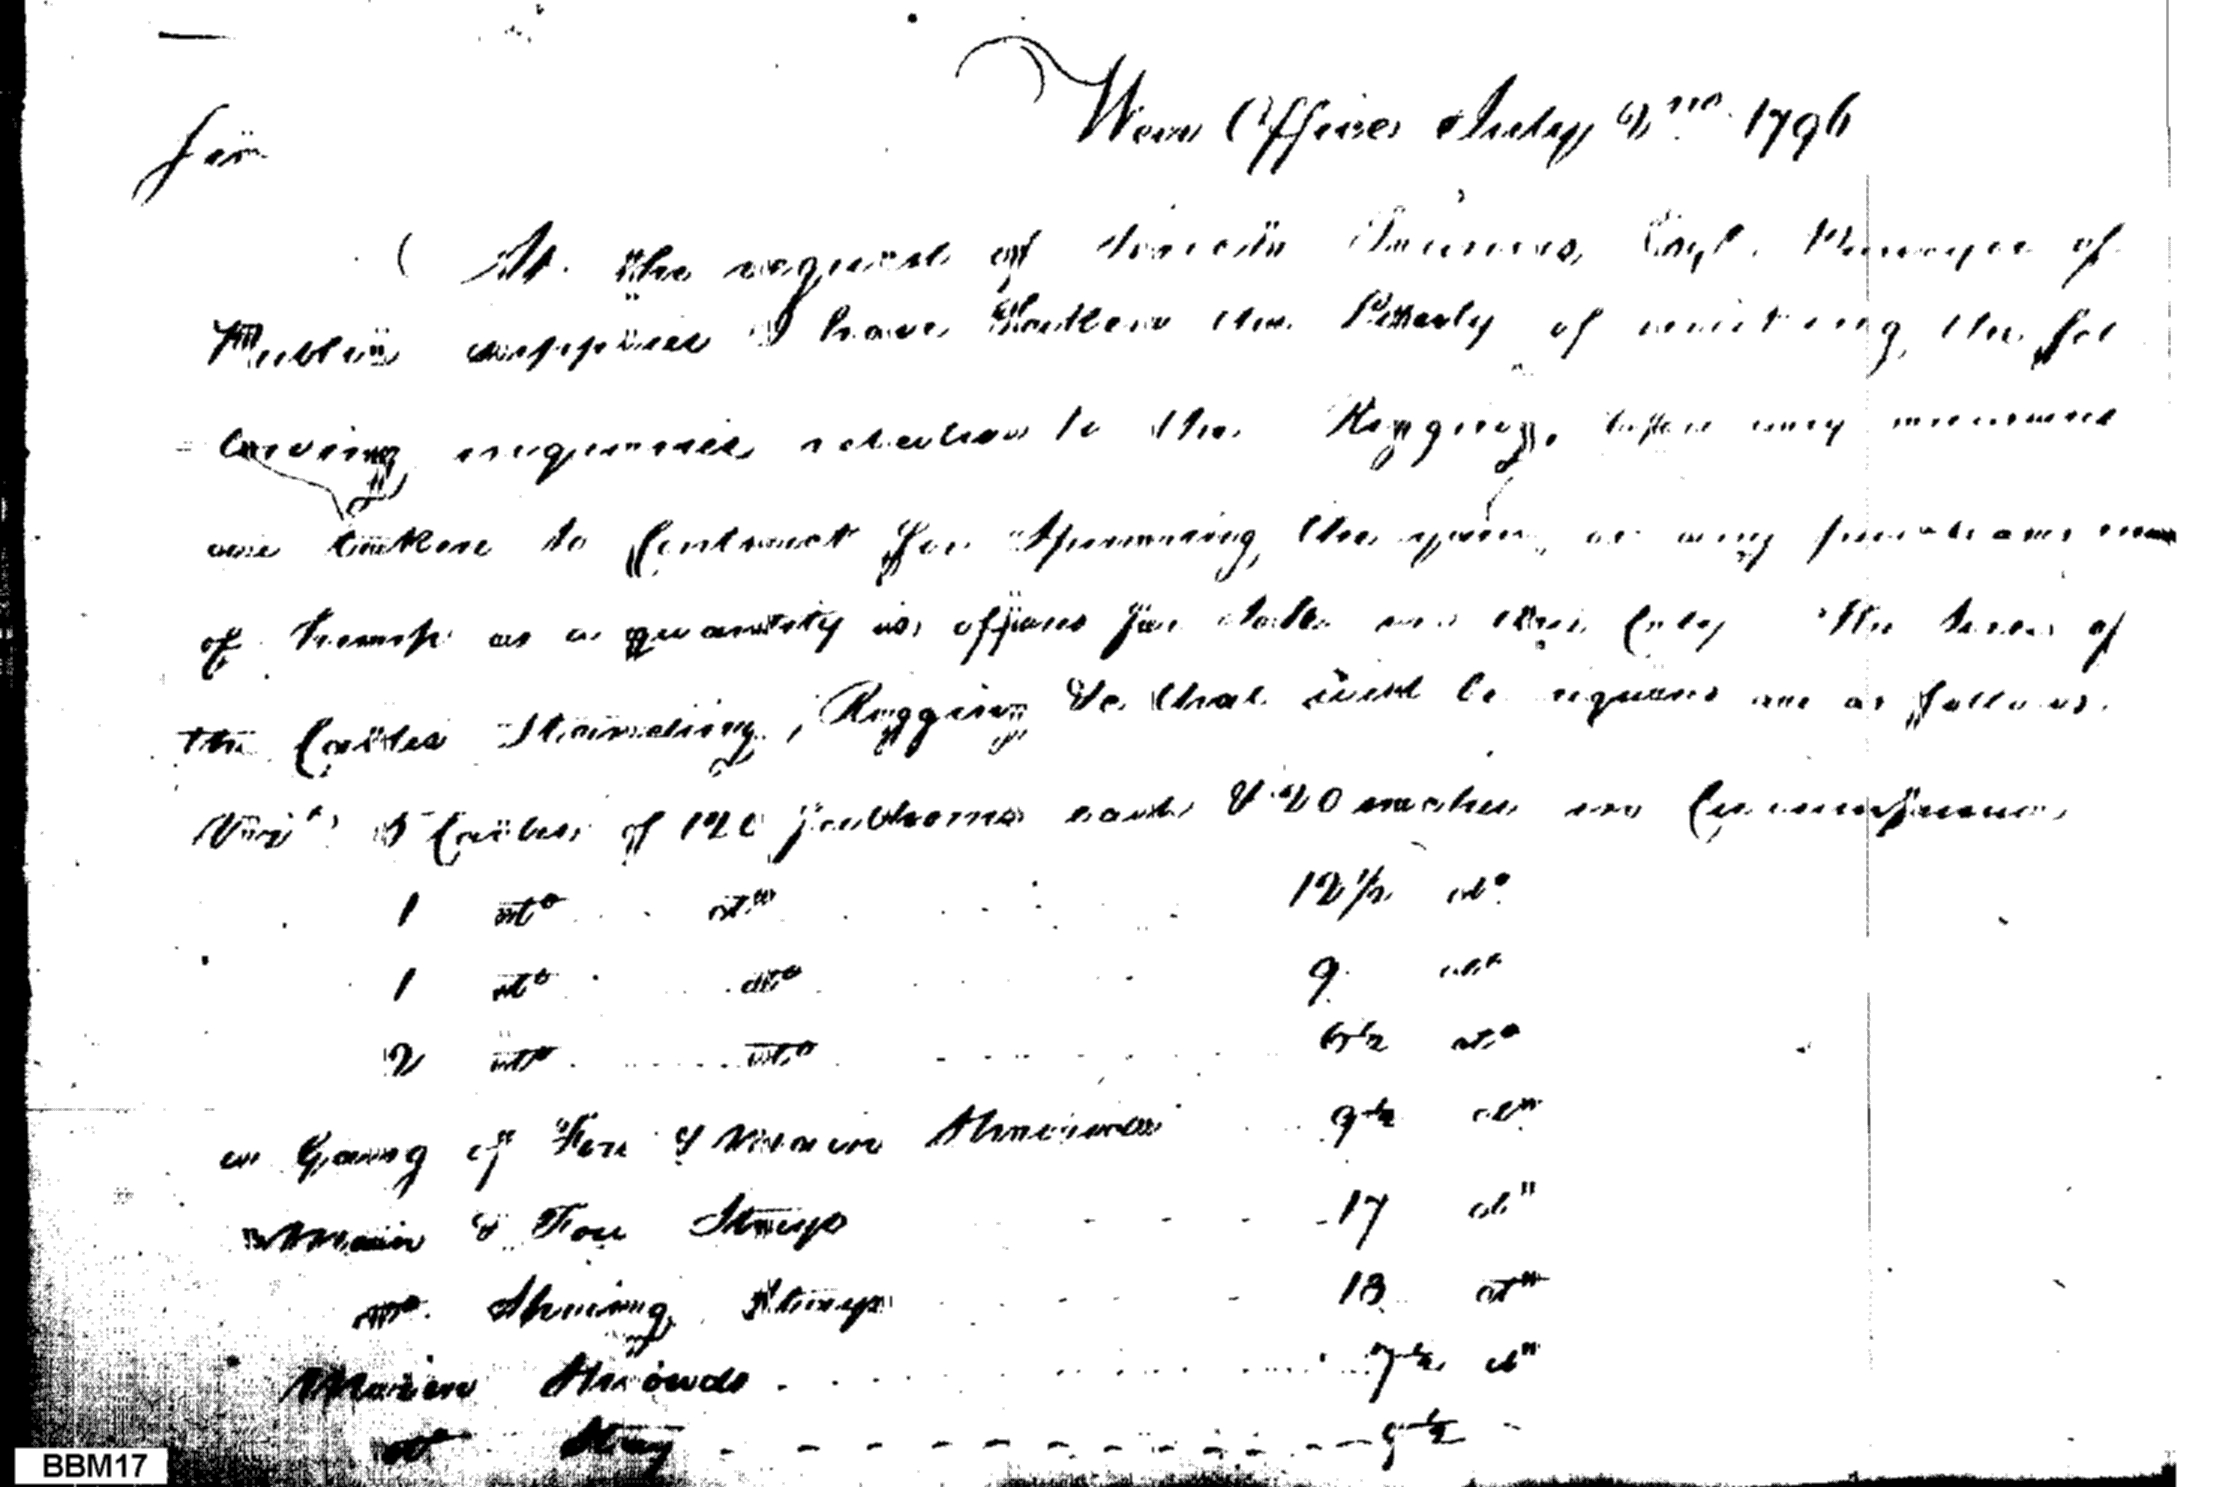 War Office July 2nd 1796
Sir
At the request of Tench Francis Esqr. Purveyor of
Public supplies I have taken the liberty of making the fol
lowing inquiries relative to the Rigging, before any measures
are taken to Contract for Spinning the yarn, or any purchase made
of hemp as a quantity is offered for sale in this City The sizes of
the Cables Standing, Rigging &c that will be required are as follows.
Vizt 5 Cables of 120 fathoms each & 20 inches in Circumference
1 do do 12 1/2 do
1 do do 9 do
2 do do 6 1/2 do
a Gang of Fore & Main Shrouds 9 1/2 do
Main & Fore Stays 17 do
do Spring Stays 13 do
Mizen Shrouds 7 1/2 do
do Stay 9 1/2
BBM17